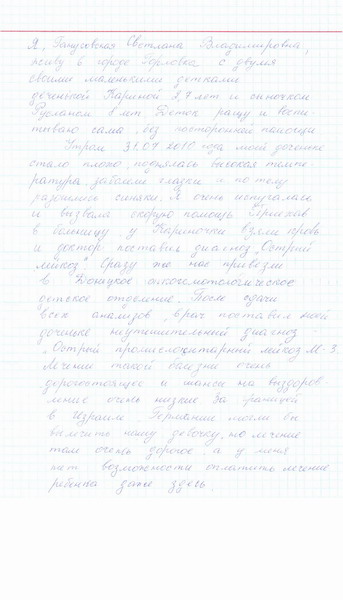 Я, Гапусовская Светлана Владимировна,
живу в городе Горловка с двумя
своими маленькими детками
доченькой Кариной 2,7 лет и сыночком
Русланом 8 лет. Деток ращу и воспи-
тываю сама, без посторонней помощи
Утром 31.07.2010 года моей доченьке
стало плохо, поднялась высокая темпе-
ратура, заболели глазки и по телу
разошлись синяки. Я очень испугалась
и вызвала скорую помощь. Приехав
в больницу у Кариночки взяли кровь
и доктор поставил диагноз „Острый
лейкоз". Сразу же нас привезли
в Донецкое онкогемотологическое
детское отделение. После сдачи
всех анализов, врач поставил моей
дочильке неутешительный диагноз
„Острый промиелоцитарный лейкоз М-3.
Лечение такой болезни очень
дорогостоящее и шансы на выздоров-
ление очень низкие. За границей
в Израиле Германии могли бы
вылечить нашу девочку, но лечение
там очень дорогое, а у меня
нет возможности оплатить лечение
ребенка даже здесь.